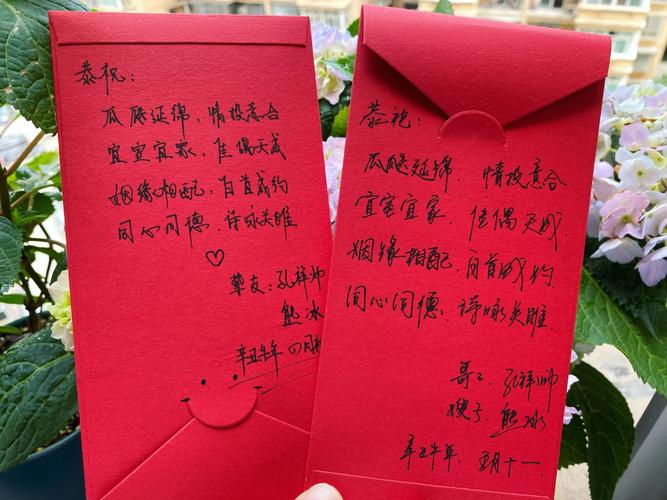 恭祝：
瓜瓞延绵，情投意合
宜室宜家，佳偶天成
姻缘相配，白首成约
同心同德，诗咏关雎
挚友：孔祥帅
熊冰
辛丑牛年 四月
恭祝：
瓜瓞延绵，情投意合
宜室宜家，佳偶天成
姻缘相配，白首成约
同心同德，诗咏关雎
哥哥：孔祥帅
嫂子：熊冰
辛丑牛年 五月十一